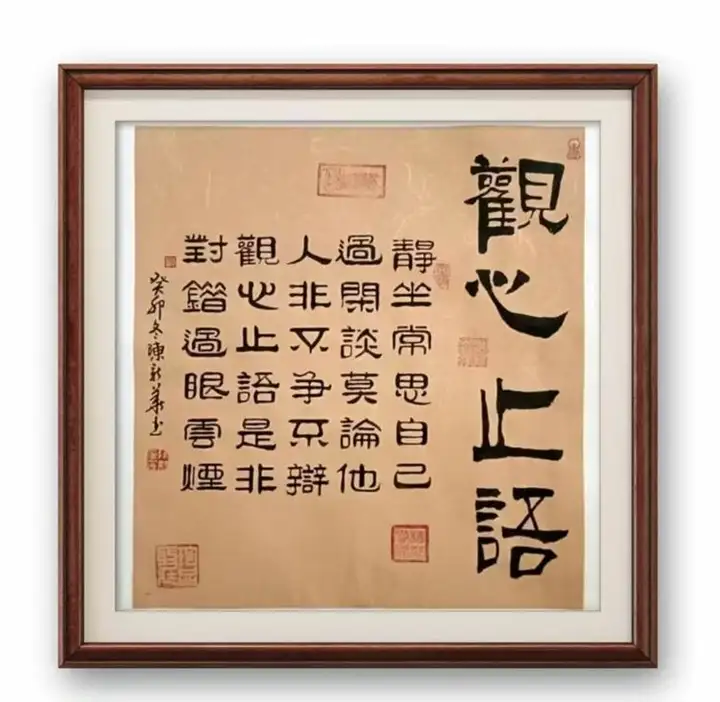 觀心止語
靜坐常思自己
過閑談莫論他
人非不争不辯
觀心止語是非
對錯過眼雲煙
癸卯冬陳新華書